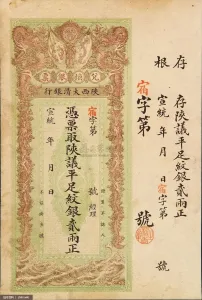 存根
存陝議平足紋銀貳兩正
宣統 年 月 日 宿字第 號
宿字第 號
兌換銀票
陝西大清銀行
宿字第 號
憑票取陝議平足紋銀貳兩正
經理
宣統 年 月 日